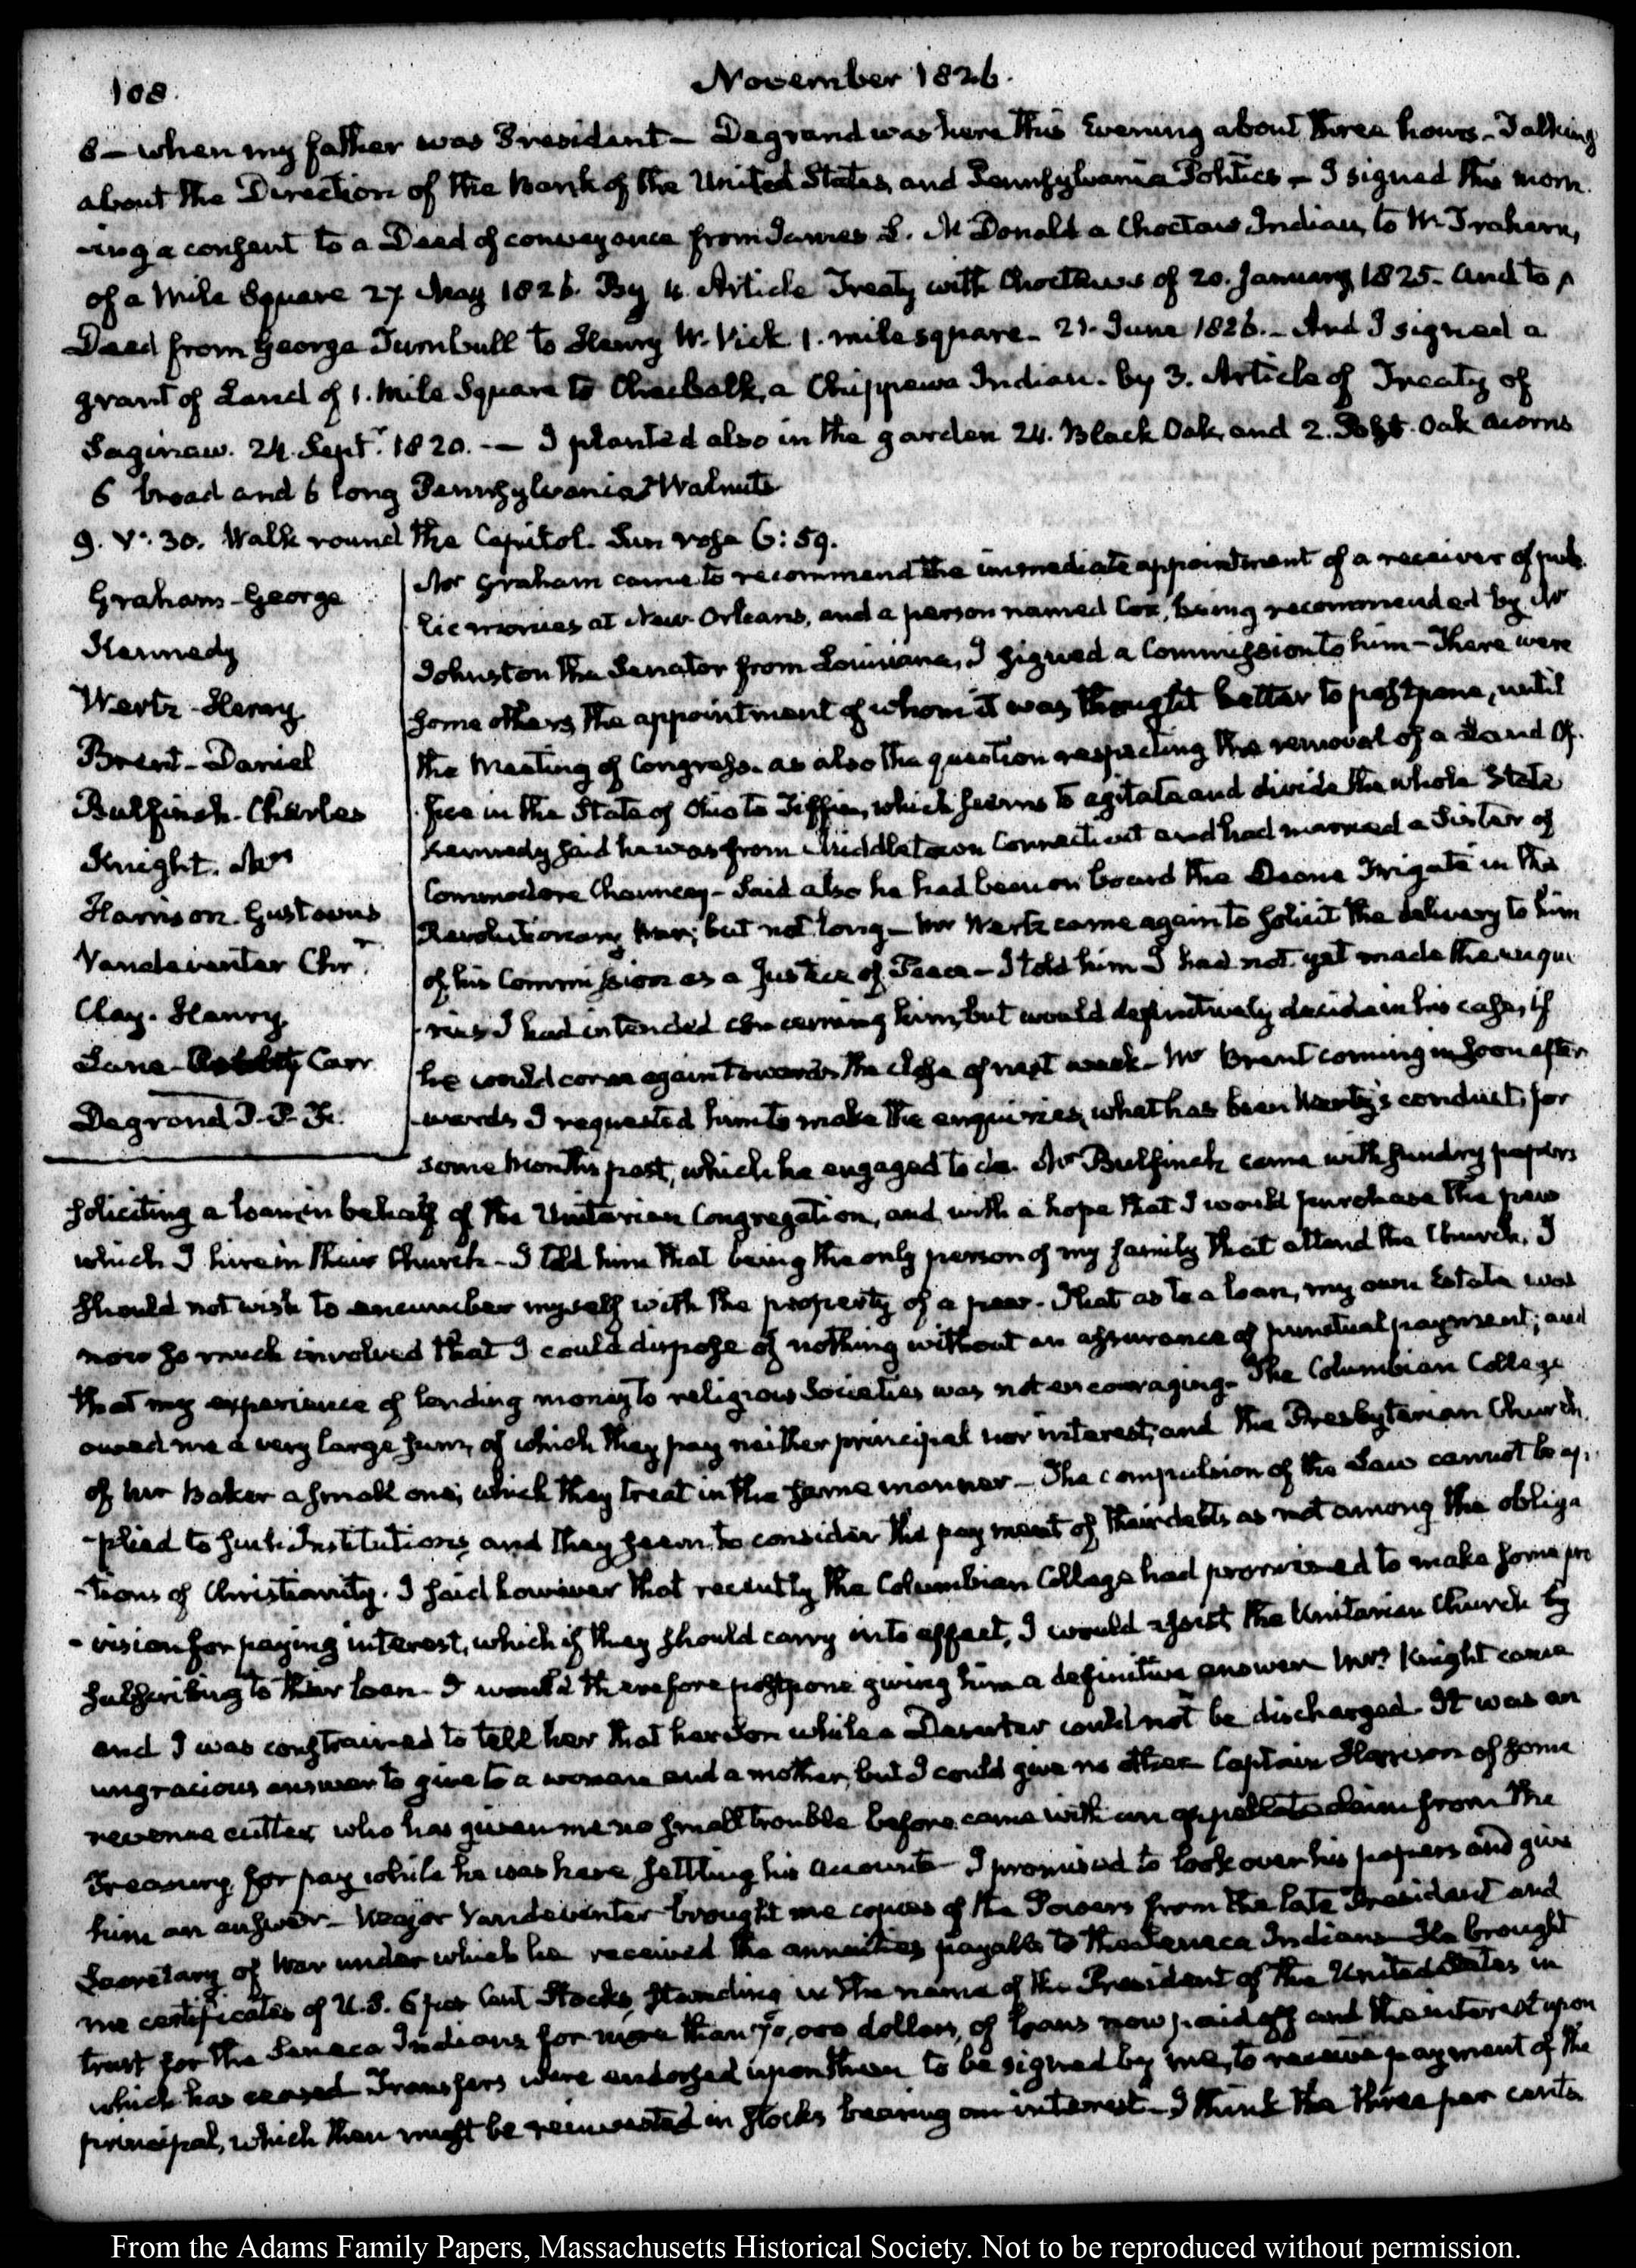 108.
November 1826.
8 — when my father was President — Degrand was here this Evening about three hours — Talking
about the Direction of the Bank of the United States, and Pennsylvania Politics — I signed this morn
-ing a consent to a Deed of conveyance from James L. McDonald a Choctaw Indian, to W. Trahern,
of a Mile Square 27 May 1826. By 4. Article Treaty with Choctaws of 20. January 1825. and to a
Deed from George Turnbull to Henry W. Vick 1. mile square. 21. June 1826. — And I signed a
grant of Land of 1. Mile Square to a Chippewa Indian. by 3. Article of Treaty of
Saginaw. 24. Septr. 1820. — I planted also in the garden 24. Black Oak, and 2. Post Oak acorns
6 broad and 6 long Pennsylvania Walnuts
9. V: 30. Walk round the Capitol. Sun rose 6:59.
Graham - George
Kennedy
Wertz - Henry
Brent - Daniel
Bulfinch - Charles
Knight. Mrs
Harrison. Gustavus
Vandeventer Chr.
Clay. Henry
Lane - Carr
Degrand P. P. F.
Mr Graham came to recommend the immediate appointment of a receiver of pub
lic monies at New Orleans, and a person named Cox, being recommended by Mr
Johnston the Senator from Louisiana, I signed a Commission to him — There were
some others, the appointment of whom it was thought better to postpone, until
the Meeting of Congress. as also the question respecting the removal of a Land Of-
fice in the State of Ohio to Tiffin, which seems to agitate and divide the whole State
Kennedy said he was from Middletown Connecticut and had married a Sister of
Commodore Chauncey — Said also he had been on board the Deane Frigate in the
Revolutionary War; but not long — Mr Wertz came again to solicit the delivery to him
of his Commission as a Justice of Peace — I told him I had not yet made the enqui
ries I had intended concerning him, but would definitively decide in his case, if
he would come again towards the close of next week — Mr Brent coming in soon after
-wards I requested him to make the enquiries, what has been Wertz's conduct, for
some Months past, which he engaged to do. Mr Bulfinch came with sundry papers
soliciting a loan in behalf of the Unitarian Congregation, and with a hope that I would purchase the pew
which I hire in their Church — I told him that being the only person of my family that attend the Church, I
should not wish to encumber myself with the property of a pew. That as to a loan, my own Estate was
now so much involved that I could dispose of nothing without an assurance of punctual payment; and
that my experience of lending money to religious Societies was not encouraging — The Columbian College
owed me a very large sum, of which they pay neither principal nor interest, and the Presbyterian Church
of Mr Baker a small one, which they treat in the same manner — The compulsion of the Law cannot be ap-
-plied to such Institutions, and they seem to consider the payment of their debts as not among the obliga
-tions of Christianity. I said however that recently the Columbian College had promised to make some pro
-vision for paying interest, which if they should carry into effect, I would assist the Unitarian Church by
subscribing to their loan — I would therefore postpone giving him a definitive answer Mrs Knight came
and I was constrained to tell her that her Son while a Deserter could not be discharged. It was an
ungracious answer to give to a woman and a mother, but I could give no other Captain Harrison of some
revenue cutter, who has given me no small trouble before, came with an appellate claim from the
Treasury, for pay while he was here settling his accounts — I promised to look over his papers and give
him an answer — Major Vandeventer brought me copies of the Powers from the late President and
Secretary of War under which he received the annuities payable to the Seneca Indians — He brought
me certificates of U.S. 6 per Cent Stocks, standing in the name of the President of the United States in
trust for the Seneca Indians for more than 70,000 dollars, of loans now paid off and the interest upon
which has ceased Transfers were endorsed upon them to be signed by me, to receive payment of the
principal, which then must be reinvested in stocks bearing an interest — I think the three per cents
From the Adams Family Papers, Massachusetts Historical Society. Not to be reproduced without permission.